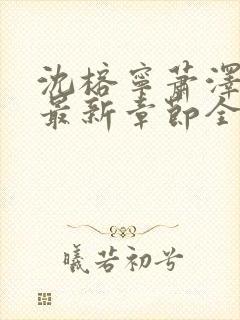 沈榕寧蕭澤
最新章節全
曦若初兮